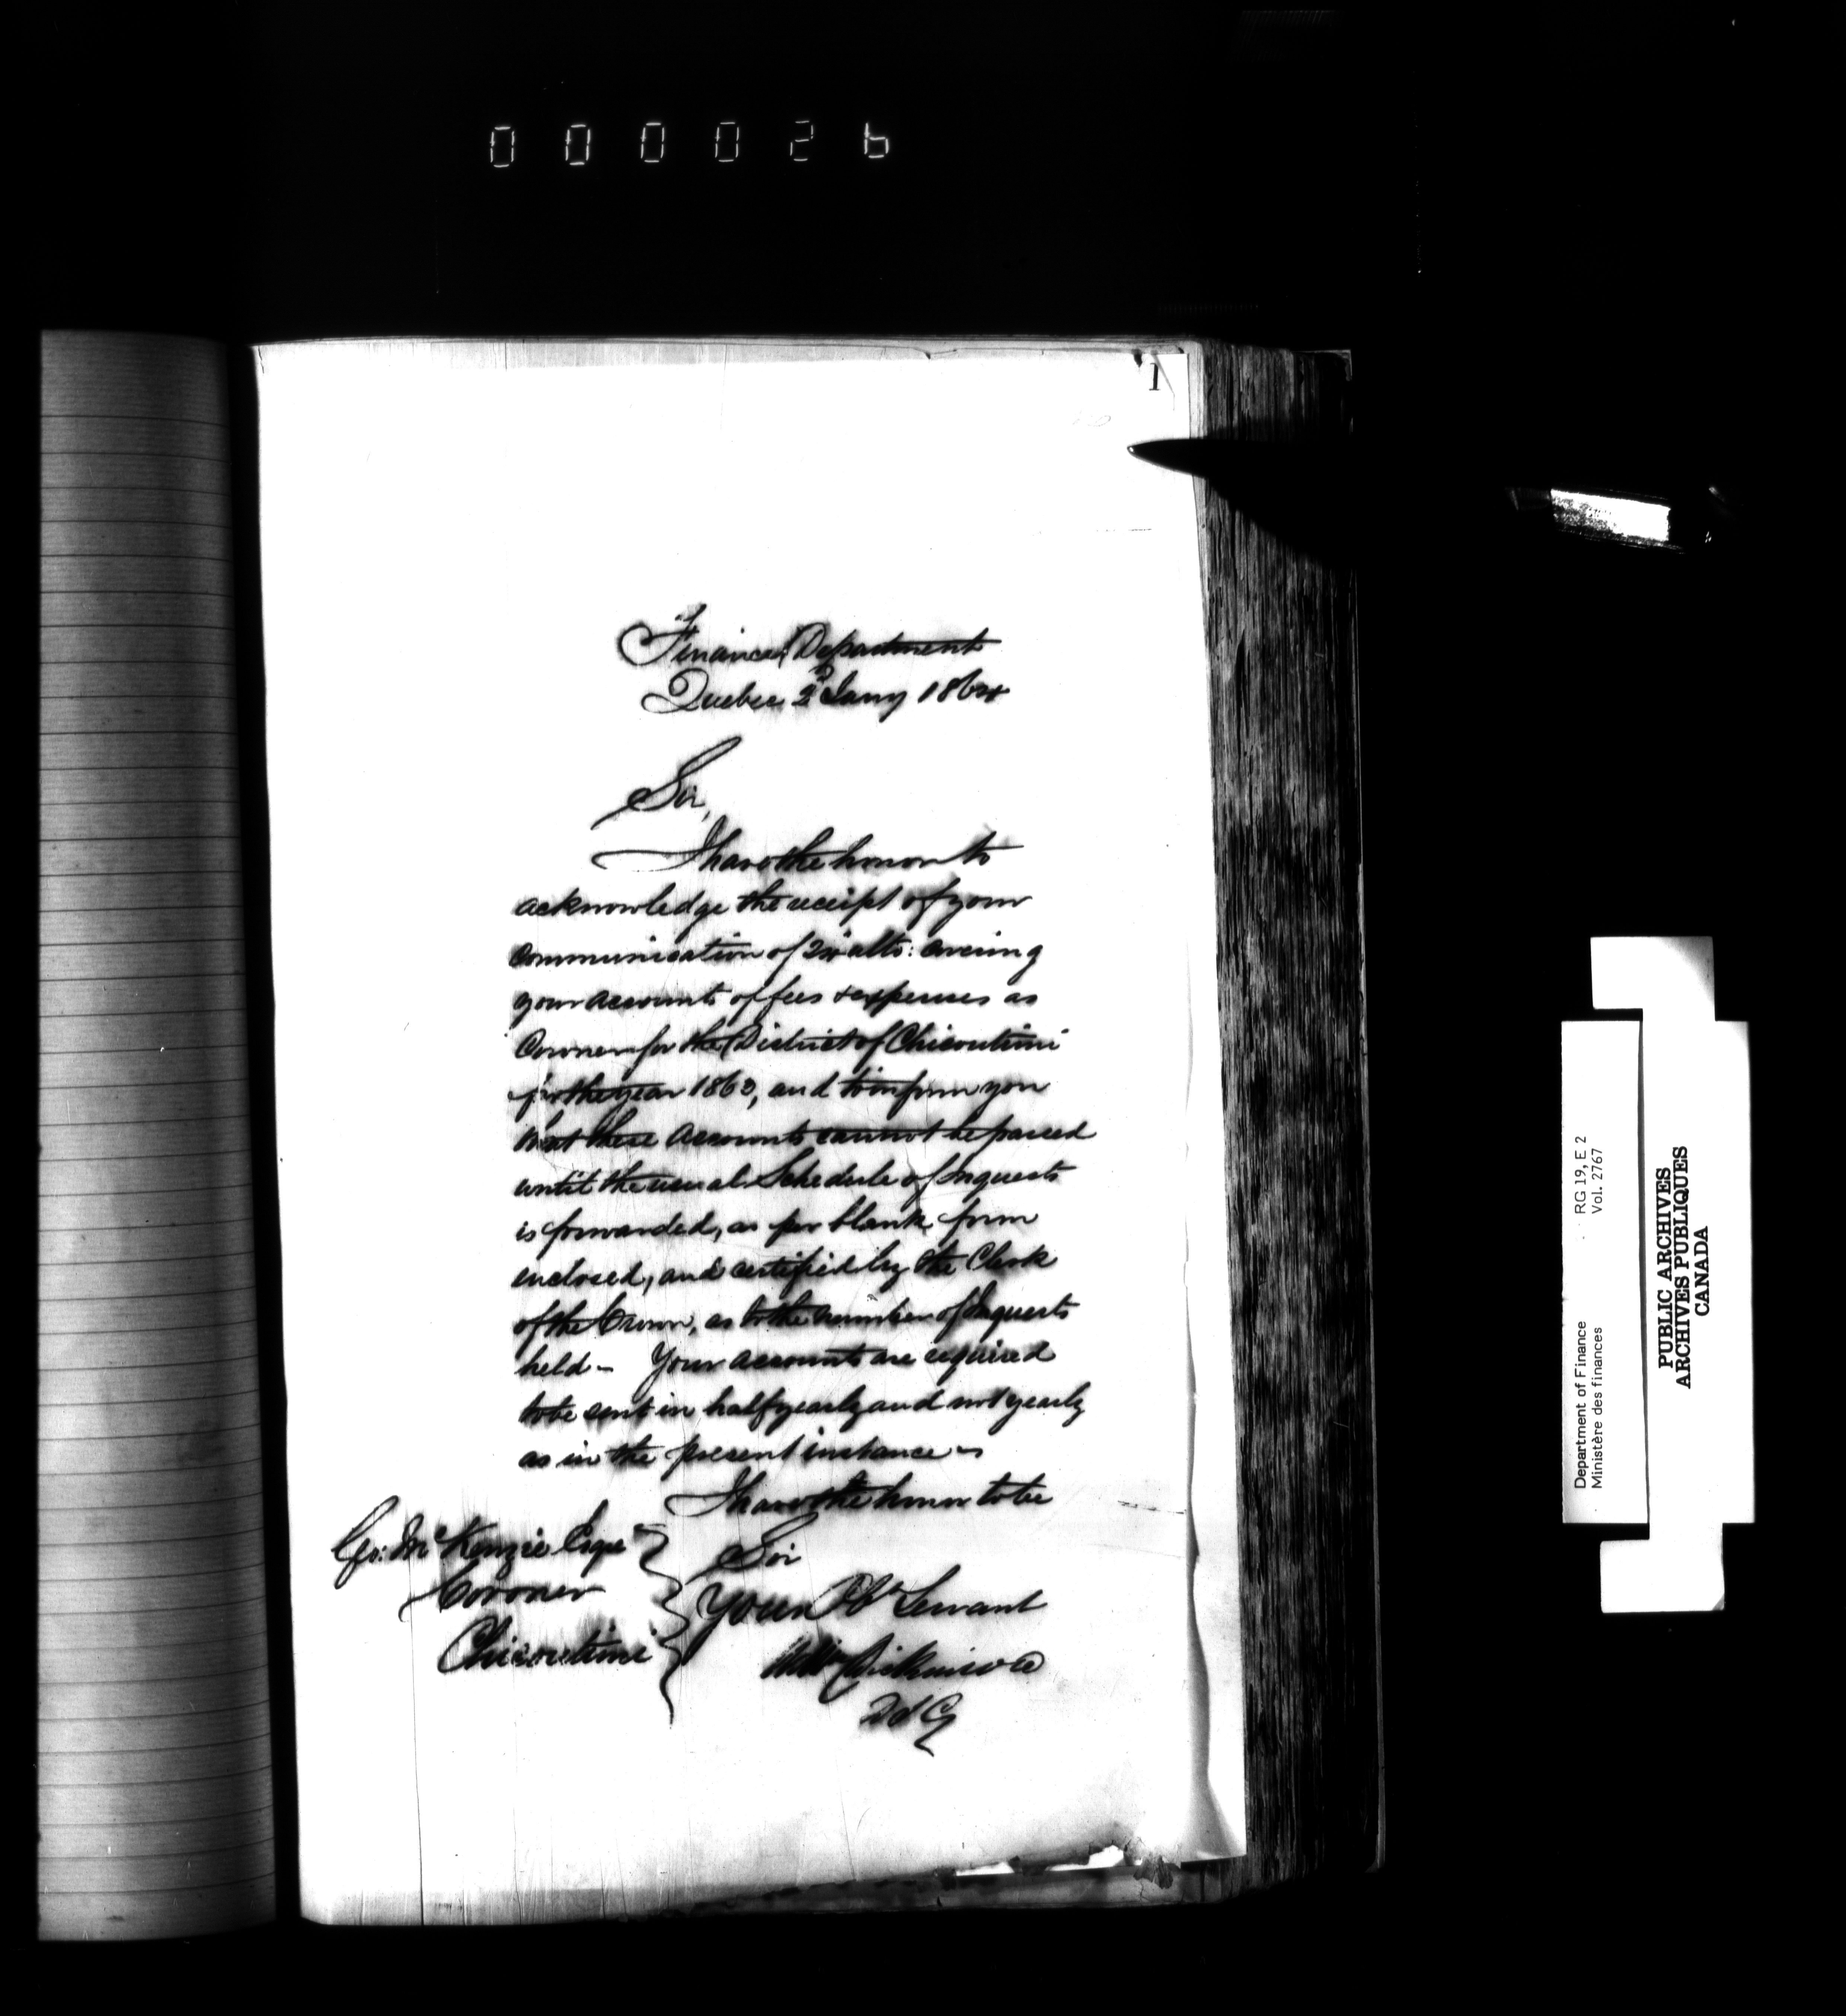 000026
1
Finance Department
Quebec 2d Jany 1864
Sir,
I have the honor to
acknowledge the receipt of your
communication of ulto: covering
your accounts of fees & expenses as
Coroner for the District of Chicoutimi
for the year 1863, and to inform you
that these accounts cannot be passed
until the usual Schedule of Inquests
is forwarded, as per blank form
enclosed, and certified by the Clerk
of the Crown, as to the number of Inquests
held – Your accounts are required
to be sent in half yearly and not yearly
as in the present instance –
I have the honor to be
Sir
Your Obt Servant
Wm Dickinson
Geo: McKenzie Esqre
Coroner
Chicoutimi
Department of Finance RG 19, E 2
Ministère des finances Vol. 2767
PUBLIC ARCHIVES
ARCHIVES PUBLIQUES
CANADA